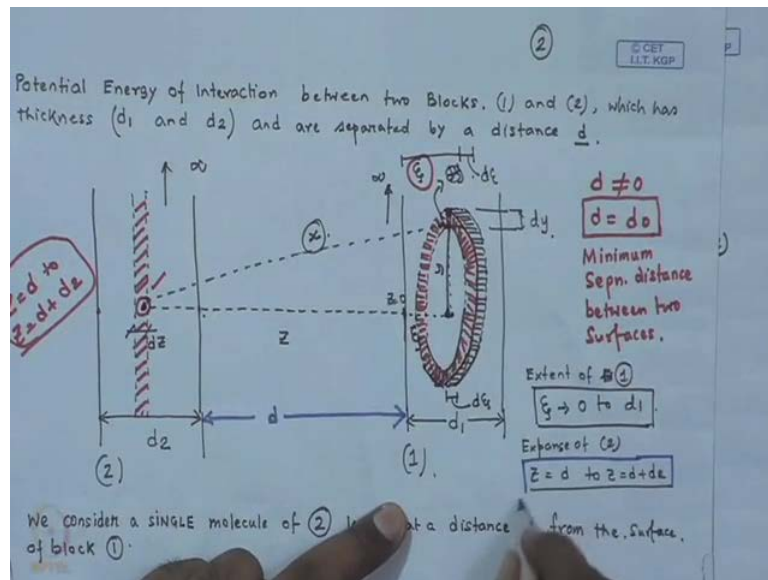 ②
© CET
I.I.T. KGP
Potential Energy of Interaction between two Blocks. (1) and (2), which has
thickness (d1 and d2) and are separated by a distance d.
∞
∞
ξ
dξ
dy
x
z=d to
z=d+d2
dz
z
z=0
dξ
d2
d
d1
(2)
(1).
d ≠ 0
d = d0
Minimum
Sepn. distance
between two
Surfaces.
Extent of ①
ξ → 0 to d1
Expanse of (2)
z = d to z = d+d2
We consider a SINGLE molecule of ② at a distance from the surface
of block ①.